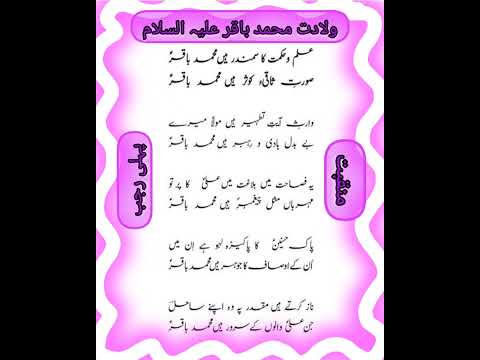 ولادت محمد باقر علیہ السلام
علم و حکمت کا سمندر ہیں محمد باقرؑ
صورتِ ثاقیٔ کوثر ہیں محمد باقرؑ
وارثِ آیتِ تطہیر ہیں مولاؑ میرے
بے بدل ہادی و رہبر ہیں محمد باقرؑ
یہ فصاحت میں بلاغت میں علیؑ کا پرتو
مہرباں مثلِ پیغمبرؐ ہیں محمد باقرؑ
پاک حسنینؑ کا پاکیزہ لہو ہے اِن میں
اُن کے اوصاف کا جوہر ہیں محمد باقرؑ
ناز کرتے ہیں مقدر پہ وہ اپنے ساحلؔ
جن علیؑ والوں کے سرور ہیں محمد باقرؑ
پہلی رجب
منقبت